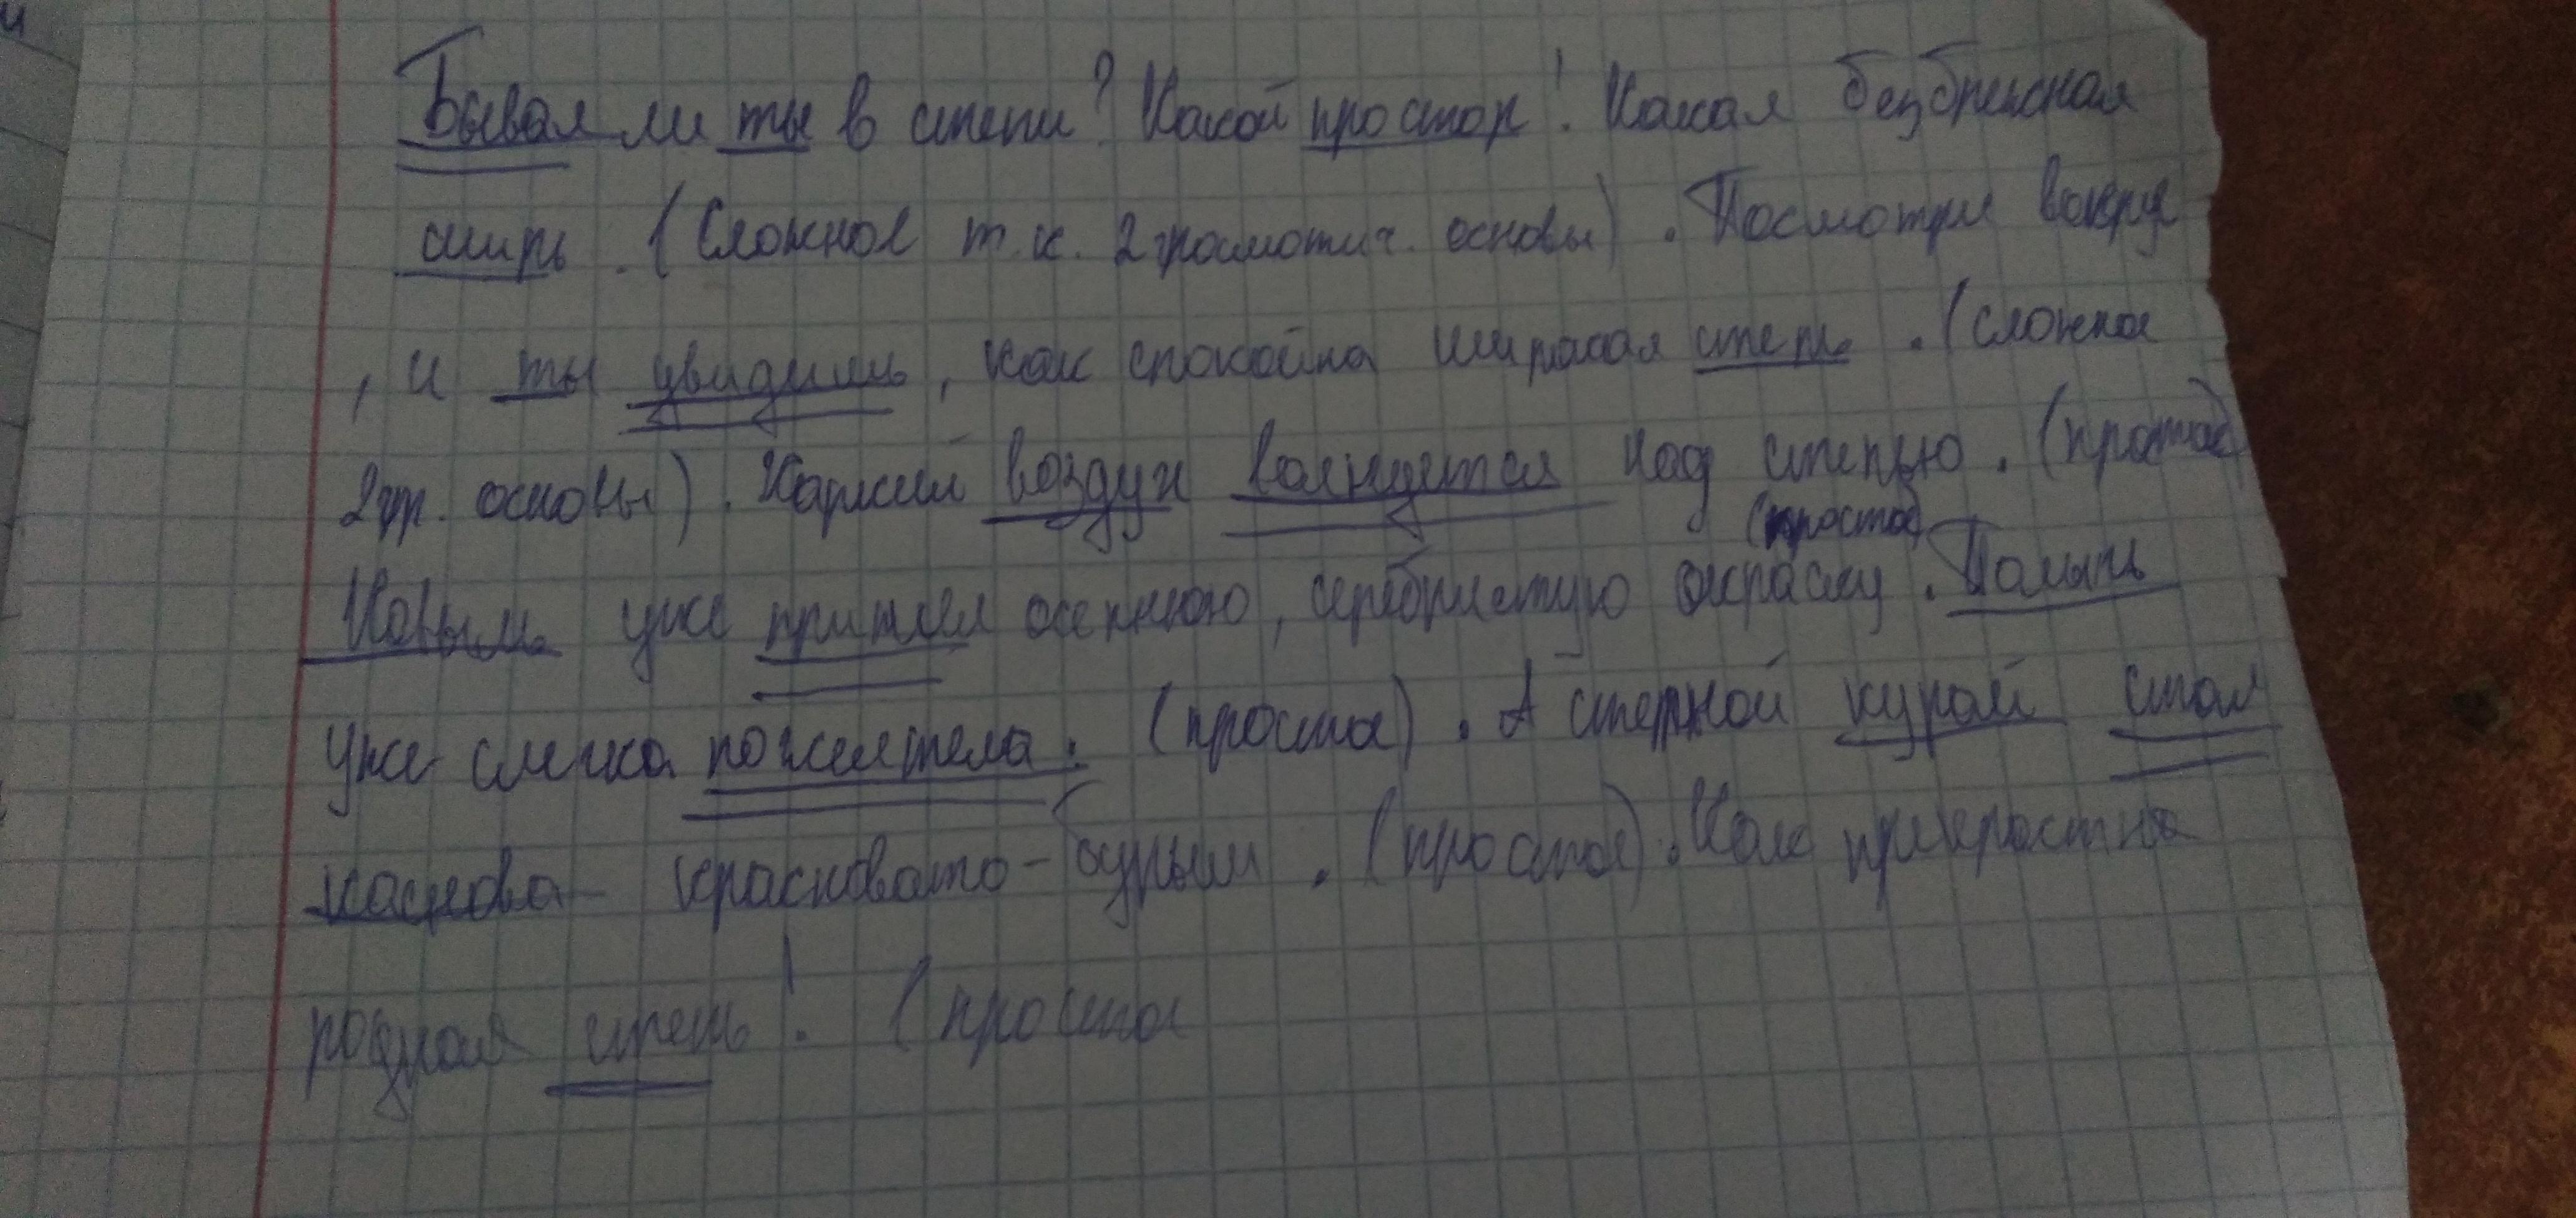 Бывал ли ты в степи? Какой простор! Какая безбрежная
ширь. (Сложное т.к. 2 грамотич. основы). Посмотри вокруг
, и ты увидишь, как спокойна широкая степь. (сложное
2 гр. основы). Жаркий воздух волнуется над степью. (простое)
(простое)
Ковыль уже принял осеннюю, серебристую окраску. Полынь
уже слегка пожелтела. (простое). А степной курай стал
каснова- красновато-бурым. (простое). Как прекрастна
родная степь! (простое